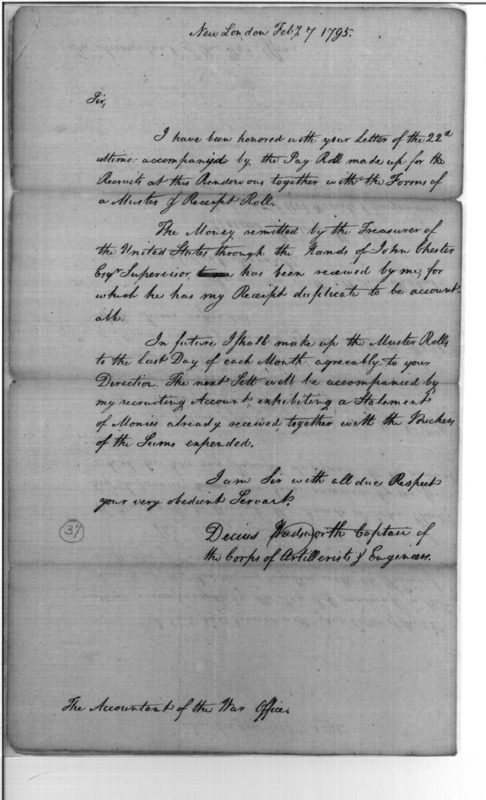 New London Feby 7 1795.
Sir,
I have been honored with your Letter of the 22d
ultimo accompanyed by the Pay Roll made up for the
Recruits at this Rendezvous together with the Forms of
a Muster & Receipt Roll.
The Money remitted by the Treasurer of
the United States through the Hands of John Chester
Esqr Supervisor, has been received by me, for
which he has my Receipt duplicate to be account-
able.
In future I shall make up the Muster Rolls
to the last Day of each Month agreeably to your
Direction. The next Sett will be accompanied by
my recruiting Account, exhibiting a Statement
of Monies already received, together with the Vouchers
of the Sums expended.
I am Sir with all due Respect
your very obedient Servant.
Decius Wadsworth Captain of
the Corps of Artillerists & Engineers.
37
The Accountant of the War Office.